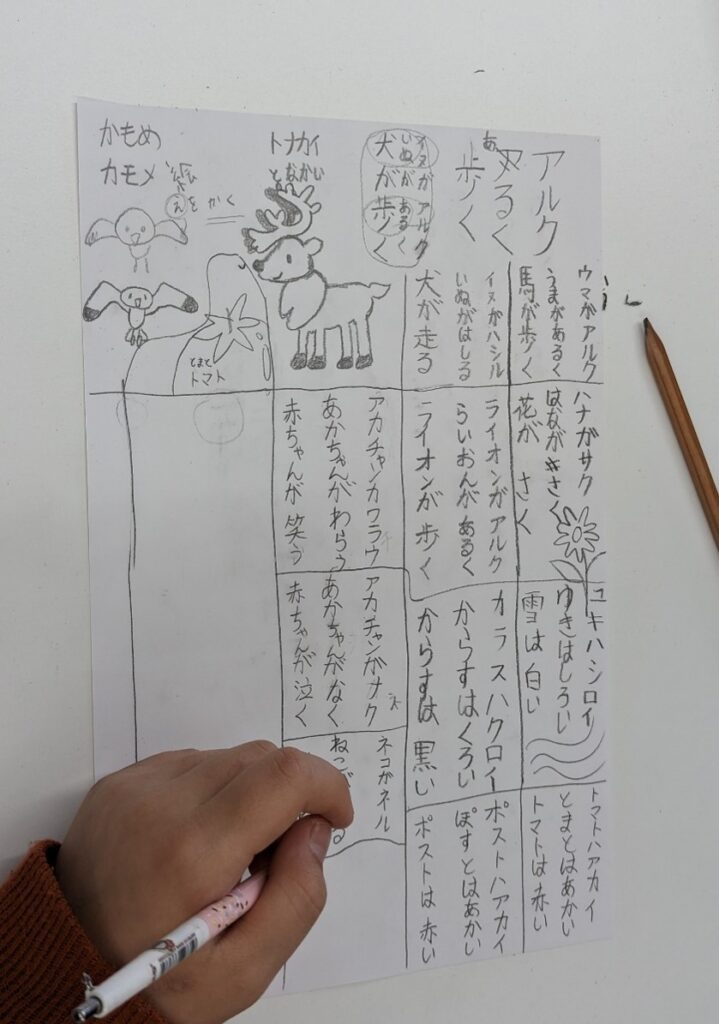 アルク
あるく
歩く
イヌがアルク
いぬがあるく
犬が歩く
トナカイ
となかい
かもめ
カモメ
えをかく
とまと
トマト
ウマがアルク
うまがあるく
馬が歩く
イヌがハシル
いぬがはしる
犬が走る
ハナがサク
はながさく
花がさく
ライオンガアルク
らいおんがあるく
ライオンが歩く
アカチャンガワラウ
あかちゃんがわらう
赤ちゃんが笑う
ユキハシロイ
ゆきはしろい
雪は白い
カラスハクロイ
からすはくろい
からすは黒い
アカチャンがナク
あかちゃんがなく
赤ちゃんが泣く
トマトハアカイ
とまとはあかい
トマトは赤い
ポストハアカイ
ぽすとはあかい
ポストは赤い
ネコがネル
ねこが